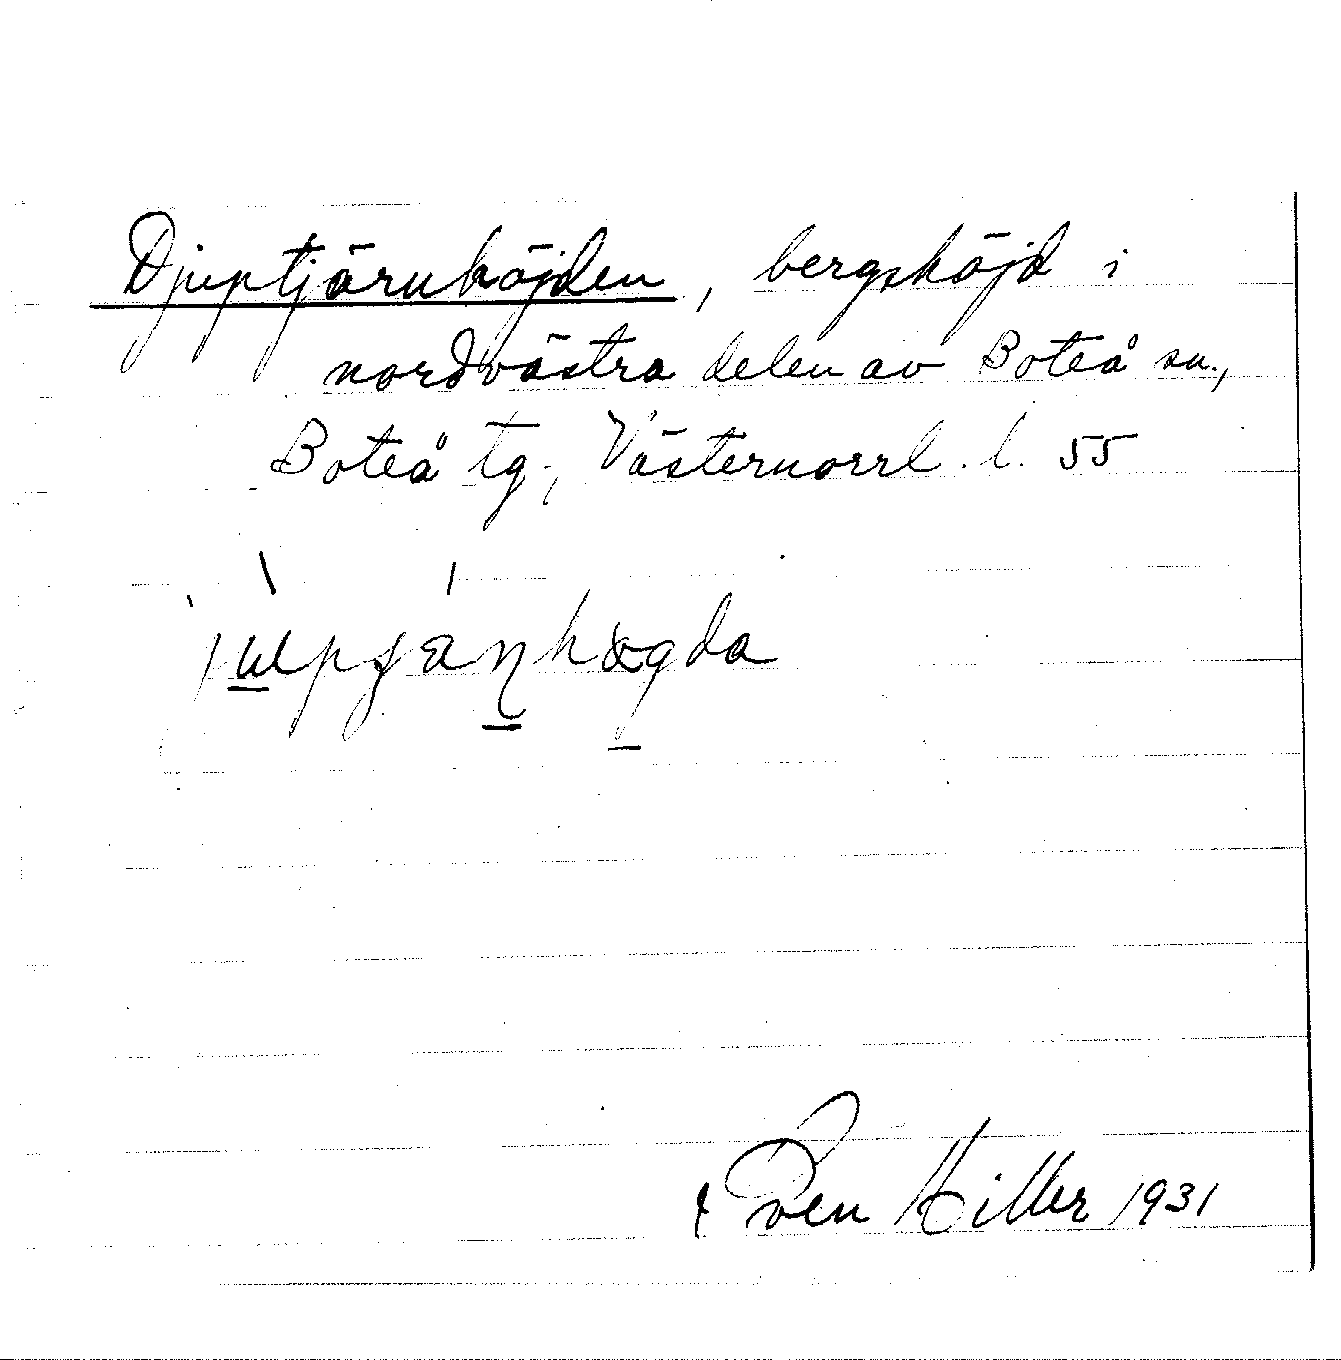 Djuptjärnhöjden, bergshöjd i
nordvästra delen av Boteå sn.,
Boteå tg., Västernorrl. l. 55
Sven Hiller 1931